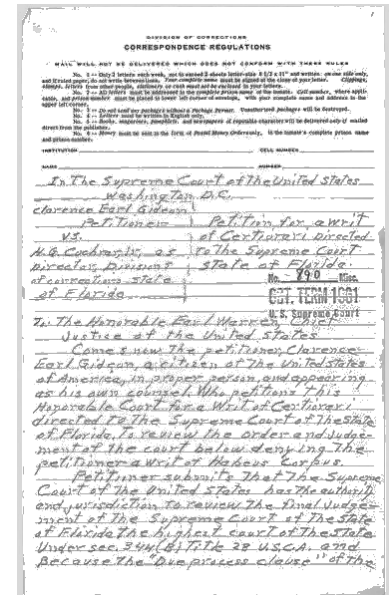 DIVISION OF CORRECTIONS
CORRESPONDENCE REGULATIONS
MAIL WILL NOT BE DELIVERED WHICH DOES NOT CONFORM WITH THESE RULES
No. 1 -- Only 2 letters each week, not to exceed 2 sheets letter-size 8 1/2 x 11" and written on one side only,
and if ruled paper, do not write between lines. Your complete name must be signed at the close of your letter. Clippings,
stamps, letters from other people, stationery or cash must not be enclosed in your letters.
No. 2 -- All letters must be addressed in the complete prison name of the inmate. Cell number, where applicable,
and prison number must be placed in lower left corner of envelope, with your complete name and address in the
upper left corner.
No. 3 -- Do not send any packages without a Package Permit. Unauthorized packages will be destroyed.
No. 4 -- Letters must be written in English only.
No. 5 -- Books, magazines, pamphlets, and newspapers of reputable character will be delivered only if mailed
direct from the publisher.
No. 6 -- Money must be sent in the form of Postal Money Orders only, in the inmate's complete prison name
and prison number.
INSTITUTION CELL NUMBER
NAME NUMBER
In The Supreme Court of The United States
Washington D.C.
Clarence Earl Gideon
Petitioner Petition for a Writ
vs. of Certiorari Directed
H.G. Cochran, Jr., as to The Supreme Court
Director, Divisions State of Florida.
of corrections State No. 890 Misc.
of Florida OCT. TERM 1961
U. S. Supreme Court
To: The Honorable Earl Warren, Chief
Justice of the United States
Comes now The petitioner, Clarence
Earl Gideon, a citizen of The United States
of America, in proper person, and appearing
as his own counsel. Who petitions this
Honorable Court for a Writ of Certiorari
directed to The Supreme Court of The State
of Florida, To review the order and Judge-
ment of the court below denying The
petitioner a writ of Habeus Corpus.
Petitioner submits That The Supreme
Court of The United States has the authority
and jurisdiction to review the final Judge-
ment of The Supreme Court of The State
of Florida the highest court of The State
Under sec. 344(B) Title 28 U.S.C.A. and
Because the "Due process clause" of the